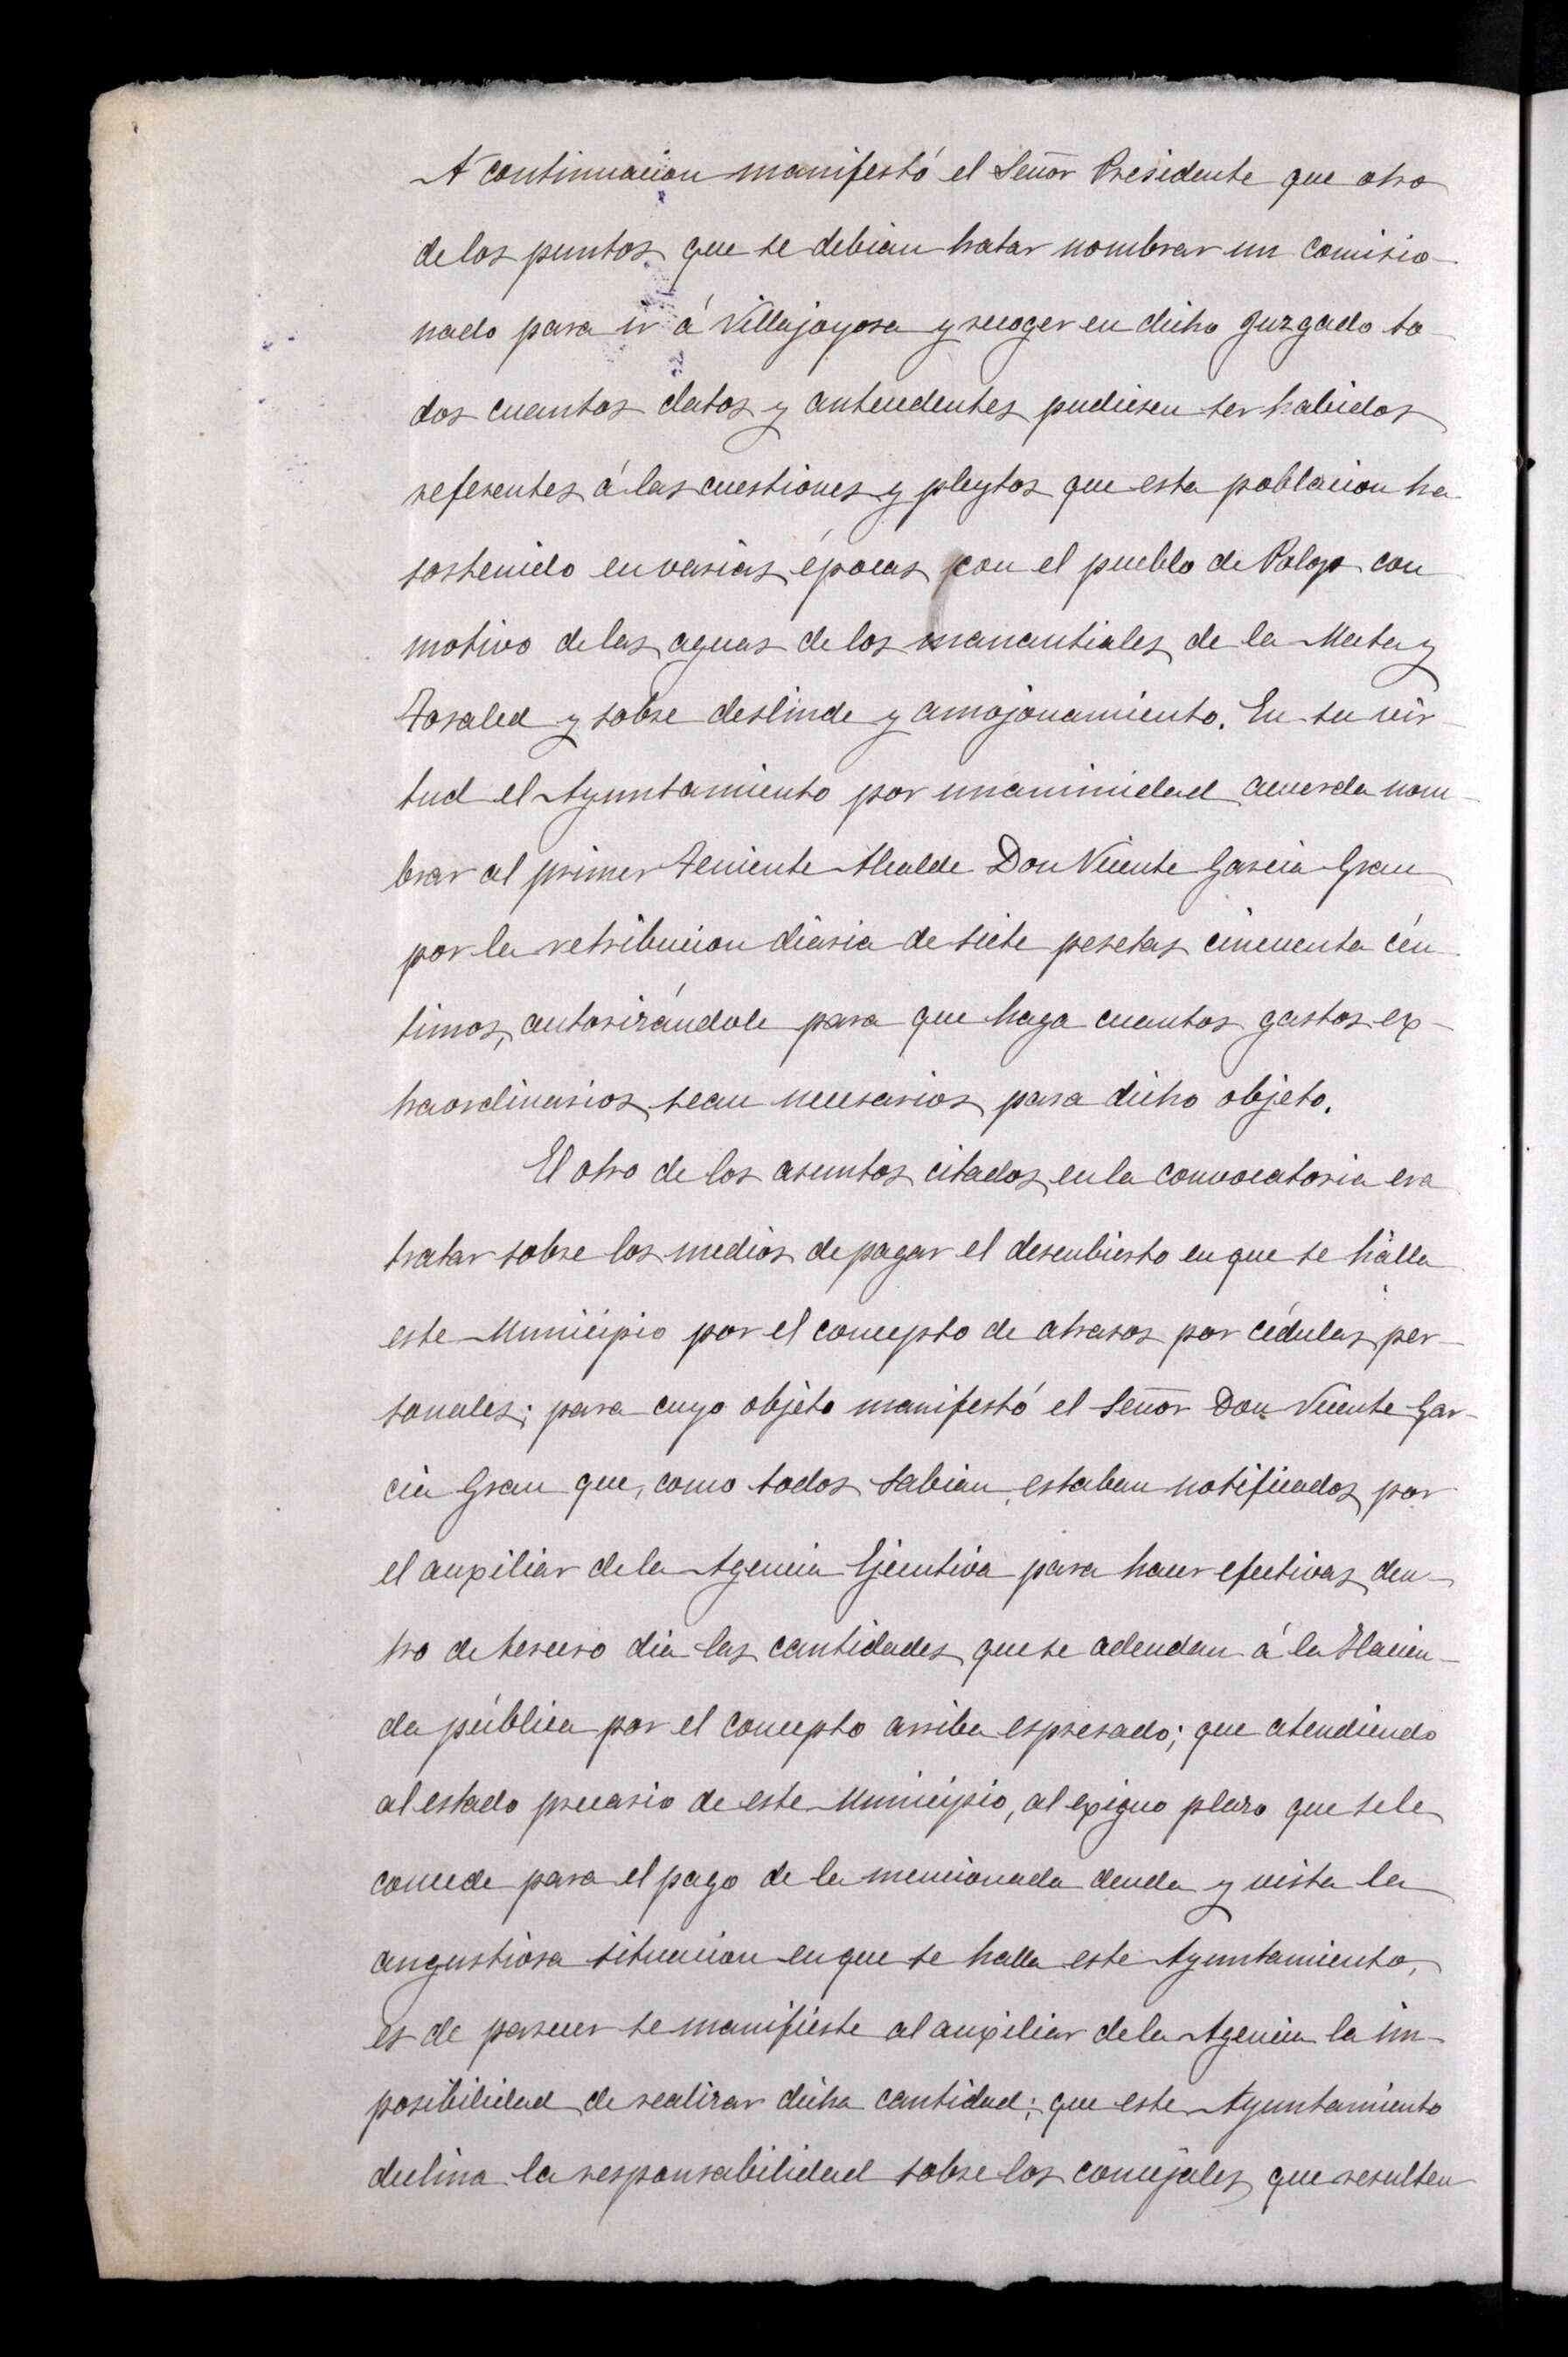 A continuacion manifestó el Señor Presidente que otro
de los puntos que se debian tratar nombrar un comisio-
nado para ir á Villajoyosa y recoger en dicho Juzgado to-
dos cuantos datos y antecedentes pudiesen ser habidos
referentes á las cuestiones y pleytos que esta poblacion ha
sostenido en varias épocas con el pueblo de Polop con
motivo de las aguas de los manantiales de la Mata y
Tosaled y sobre deslinde y amojonamiento. En su vir-
tud el Ayuntamiento por unanimidad acuerda nom-
brar al primer Teniente Alcalde Don Vicente Garcia Grau
por la retribucion diaria de siete pesetas cincuenta cén-
timos, autorizándole para que haga cuantos gastos ex-
traordinarios sean necesarios para dicho objeto.
El otro de los asuntos citados en la convocatoria era
tratar sobre los medios de pagar el descubierto en que se halla
este Municipio por el concepto de atrasos por cédulas per-
sonales; para cuyo objeto manifestó el Señor Don Vicente Gar-
cia Grau que, como todos sabian, estaban notificados por
el auxiliar de la Agencia Ejecutiva para hacer efectivas den-
tro de tercero dia las cantidades que se adeudan á la Hacien-
da pública por el concepto arriba espresado; que atendiendo
al estado precario de este Municipio, al exiguo plazo que se le
concede para el pago de la mencionada deuda y vista la
angustiosa situacion en que se halla este Ayuntamiento,
es de parecer se manifieste al auxiliar de la Agencia la im-
posibilidad de realizar dicha cantidad; que este Ayuntamiento
declina la responsabilidad sobre los concejales que resulten